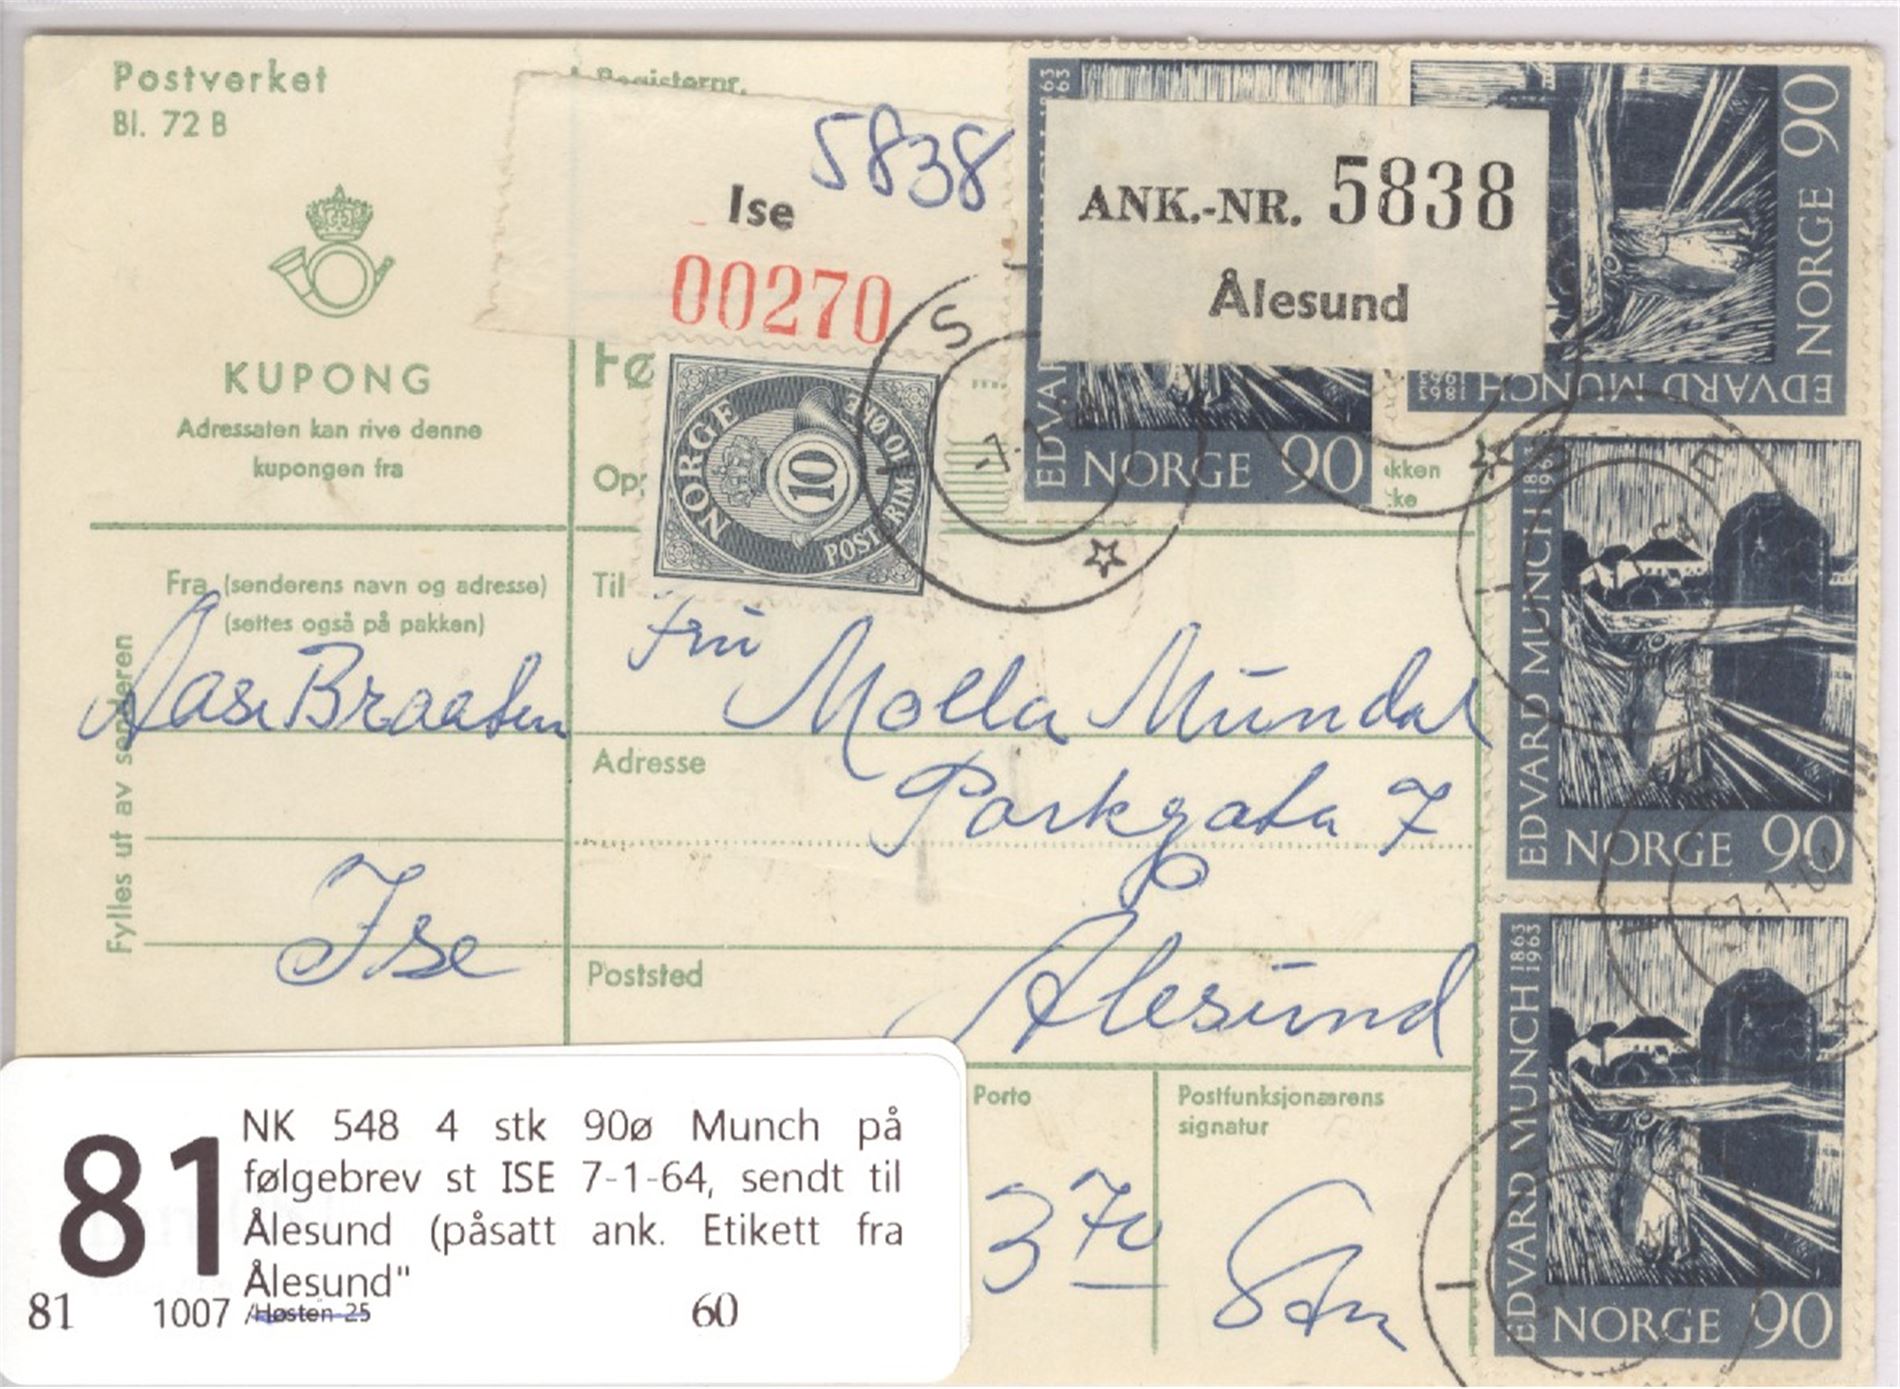 Postverket
Bl. 72 B
KUPONG
Adressaten kan rive denne
kupongen fra
Fra (senderens navn og adresse)
(settes også på pakken)
Fylles ut av senderen
Aase Braaten
Ise
Registernr.
5838
Ise
00270
Fø
Opp
NORGE
10
POSTFRIM
ANK.-NR. 5838
Ålesund
1863
EDVARD
NORGE 90
EDVARD MUNCH 1863 1963
NORGE 90
kken
ke
Til
Fru Molla Mundal
Adresse
Parkgata 7
Ålesund
Poststed
Ålesund
Porto
3 70
Postfunksjonærens
signatur
EDVARD MUNCH 1863 1963
NORGE 90
7.1.64
EDVARD MUNCH 1863 1963
NORGE 90
81
NK 548 4 stk 90ø Munch på
følgebrev st ISE 7-1-64, sendt til
Ålesund (påsatt ank. Etikett fra
Ålesund"
81 1007 /Høsten 25 60